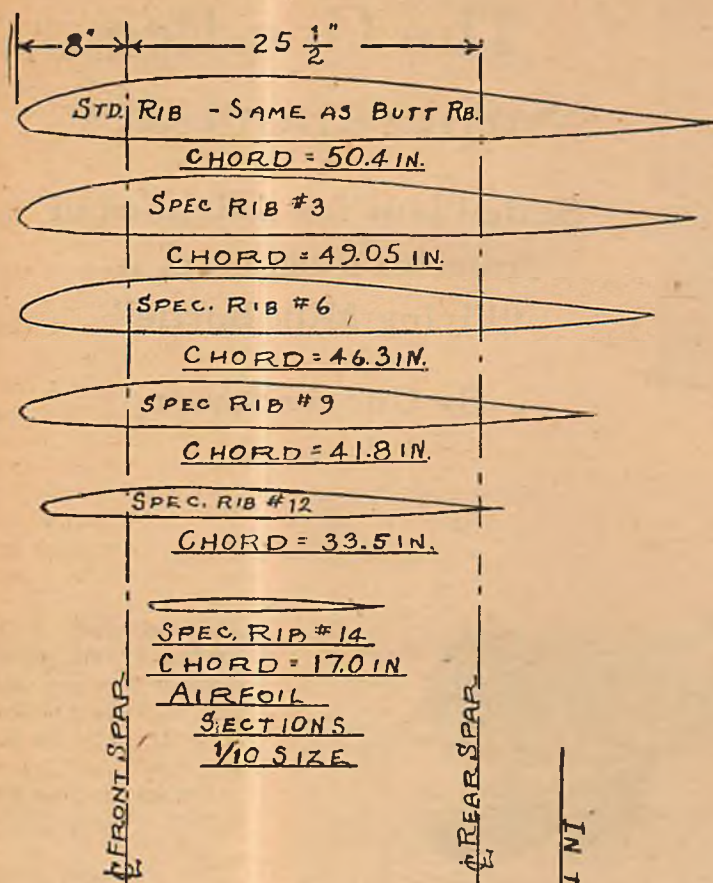 8" 25 1/2"
STD. RIB - SAME AS BUTT RB.
CHORD = 50.4 IN.
SPEC RIB #3
CHORD = 49.05 IN.
SPEC. RIB #6
CHORD = 46.3 IN.
SPEC RIB #9
CHORD = 41.8 IN.
SPEC. RIB #12
CHORD = 33.5 IN.
SPEC. RIB #14
CHORD = 17.0 IN
AIRFOIL
SECTIONS
1/10 SIZE
℄ FRONT SPAR
℄ REAR SPAR